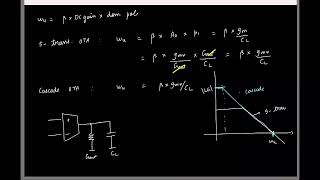 ωu = β × DC gain × dom pole
5-trans. OTA : ωu = β × A0 × p1 = β × gm/CL
= β × gm/Gout × Gout/CL = β × gm/CL
Cascode OTA : ωu = β × gm/CL
|LG|
cascode
5-tran
Gout
CL
ωu